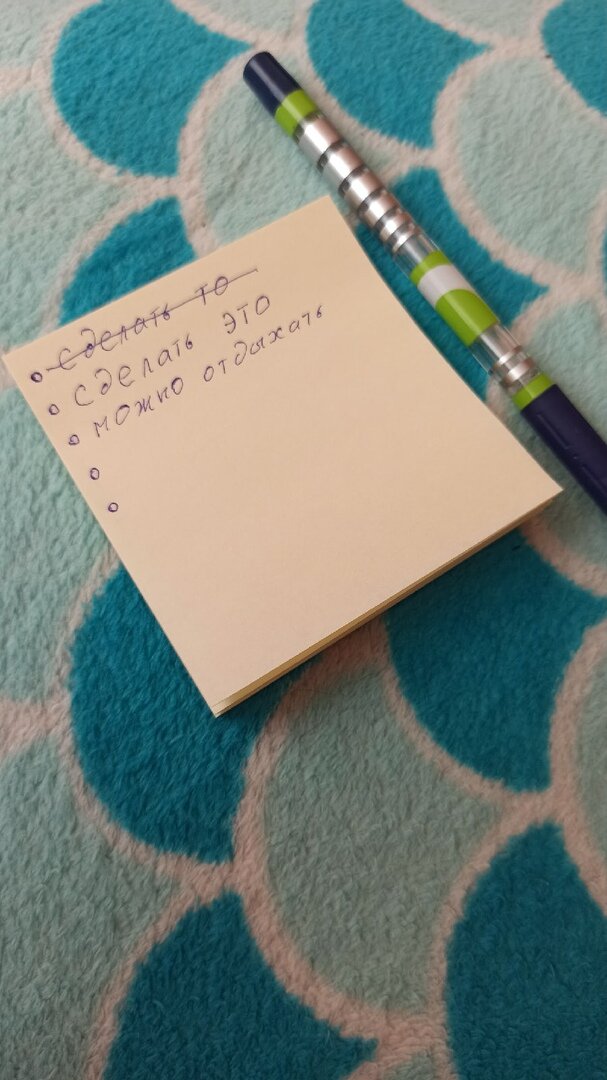 сделать то
сделать это
можно отдыхать